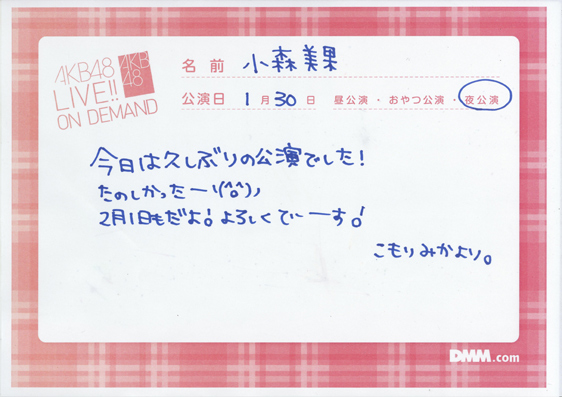 AKB48
LIVE!!
ON DEMAND
AKB
48
名前 小森美果
公演日 1月30日 昼公演・おやつ公演・夜公演
今日は久しぶりの公演でした!
たのしかったー\(^o^)ノ
2月1日もだよ!よろしくでぃーす!
こもりみかより。
DMM.com